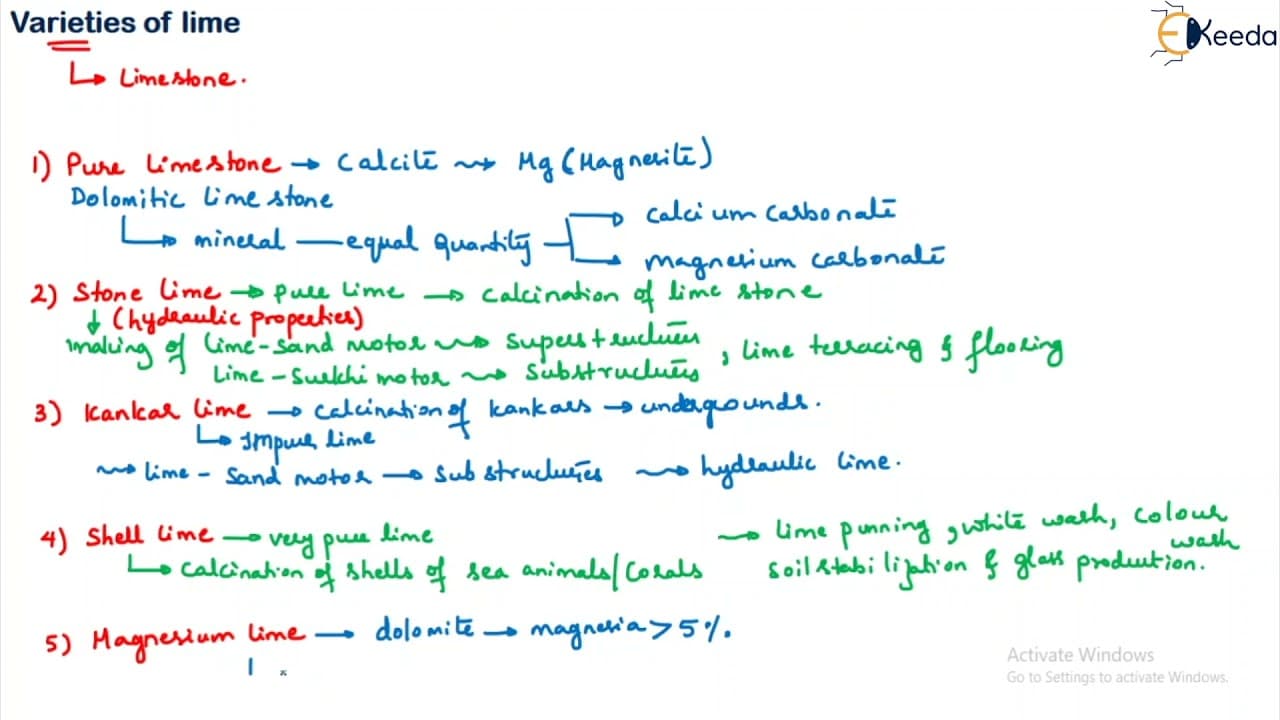 Varieties of lime
EKeeda
↳ Limestone.
1) Pure Limestone → Calcite ⇝ Mg (Magnesite)
Dolomitic Lime stone
↳ mineral — equal Quantity → calcium carbonate
→ magnesium carbonate
2) Stone Lime → Pure Lime → Calcination of lime stone
↓ (hydraulic properties)
making of Lime-Sand motor ⇝ Superstructures
Lime-Surkhi motor ⇝ Substructures , lime terracing & flooring
3) Kankar Lime → Calcination of kankars → undergrounds.
↳ Impure lime
⇝ Lime - Sand motor → Sub structures ⇝ hydraulic lime.
4) Shell Lime → very pure lime
↳ Calcination of shells of sea animals/Corals
⇝ Lime punning, white wash, colour wash
soil stabilization & glass production.
5) Magnesium Lime → dolomite → magnesia > 5%.
Activate Windows
Go to Settings to activate Windows.